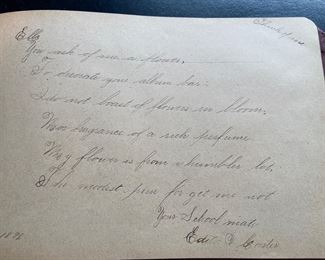 Think of me
Ella
You ask of me a flower,
To decorate your album
I do not boast of flowers in bloom,
Nor fragrance of a rich perfume
My flower is from a humbler lot,
of
The modest, pure for get me not
Your School mate
Edith
189